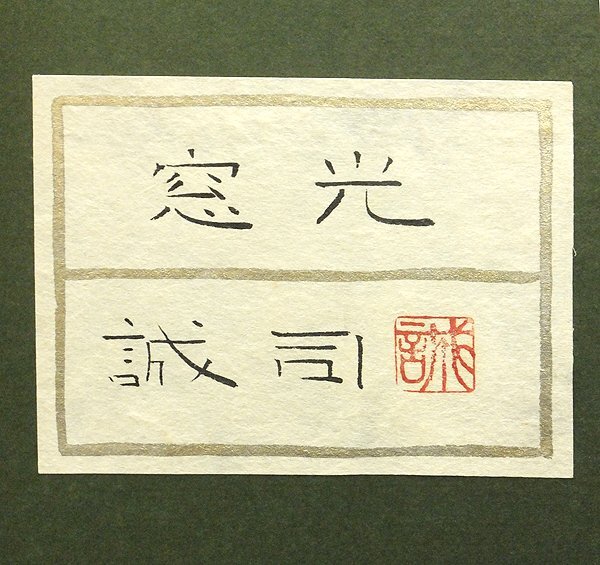 窓光
誠司